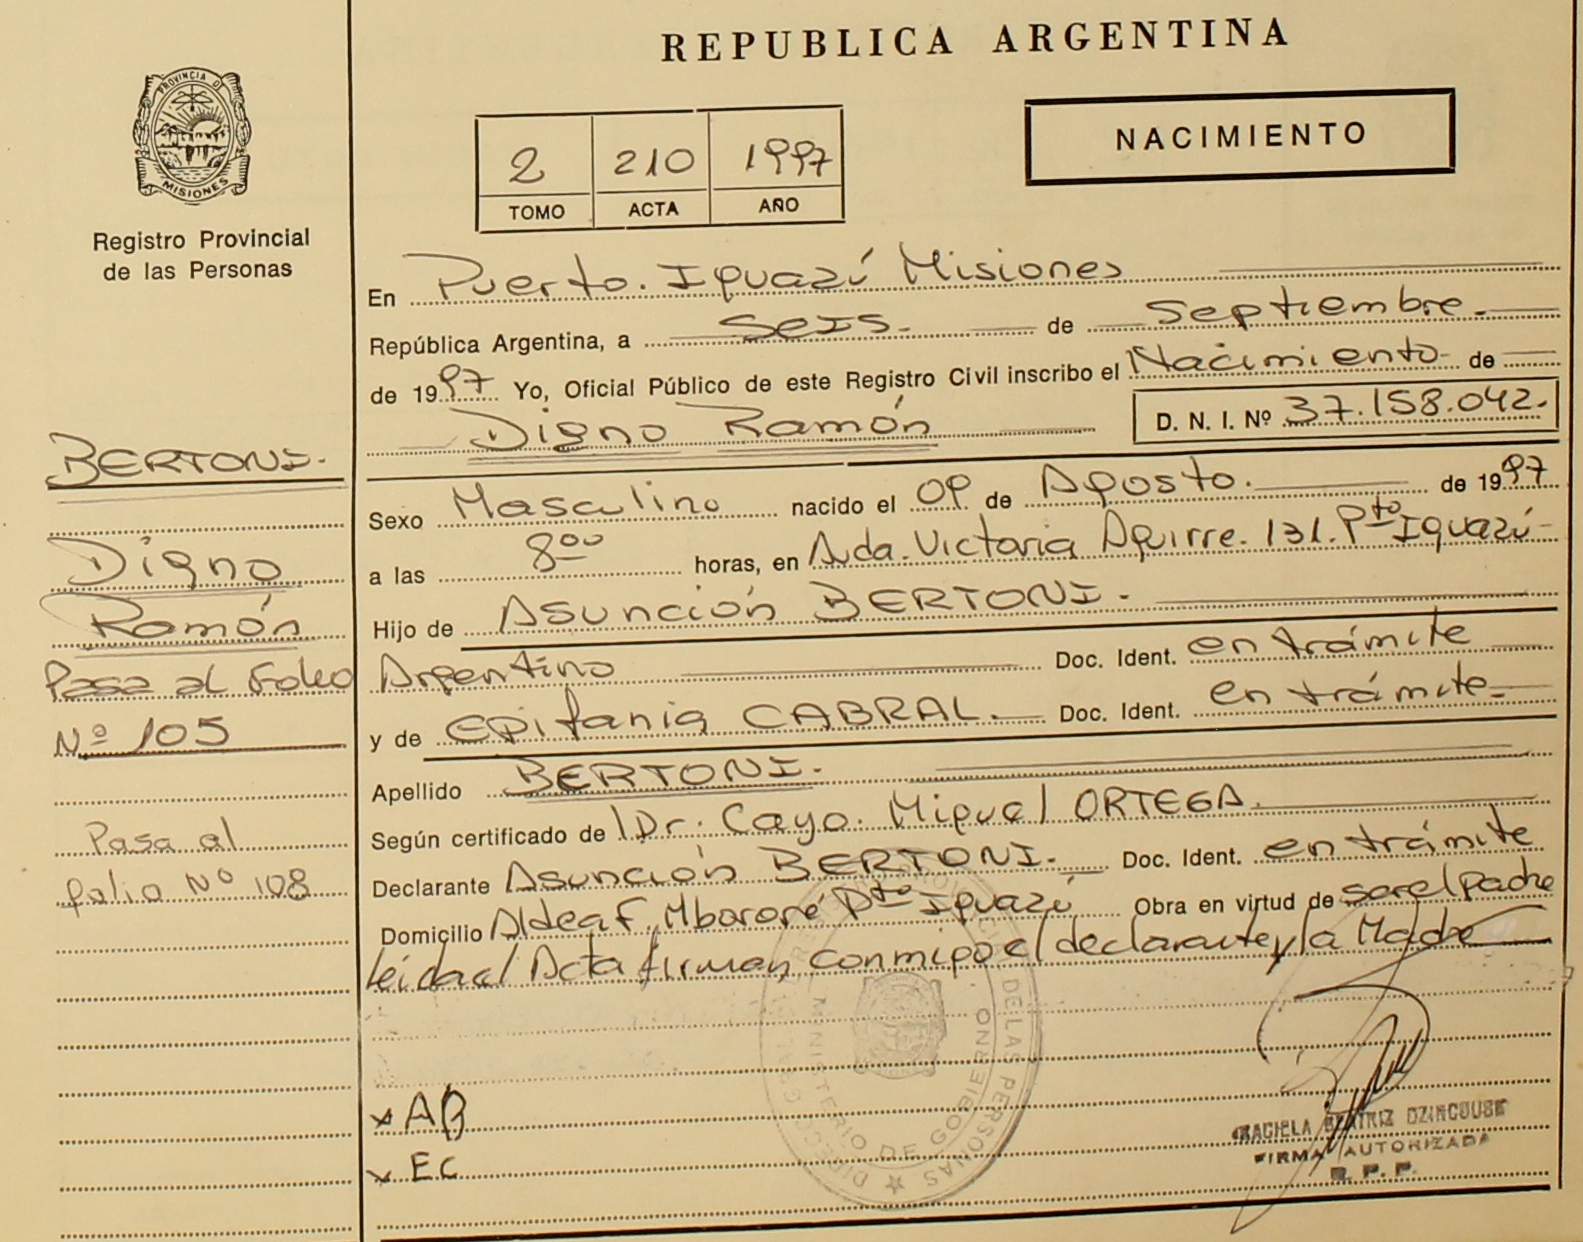 REPUBLICA ARGENTINA
PROVINCIA DE
MISIONES
Registro Provincial
de las Personas
2 210 1997
TOMO ACTA AÑO
NACIMIENTO
En Puerto. Iguazú Misiones
República Argentina, a SEIS. de Septiembre.
de 1997 Yo, Oficial Público de este Registro Civil inscribo el Nacimiento de
Digno Ramón
D. N. I. Nº 37.158.042.
BERTONI.
Digno
Ramón
Pasa al Folio
Nº 105
Pasa al
folio Nº 108
Sexo Masculino nacido el 09 de Agosto. de 1997
a las 8⁰⁰ horas, en Avda. Victoria Aguirre. 131. Pto Iguazú
Hijo de Asunción BERTONI.
Argentino Doc. Ident. en trámite
y de Epifania CABRAL. Doc. Ident. en trámite.
Apellido BERTONI.
Según certificado de Dr. Cayo. Miguel ORTEGA.
Declarante Asunción BERTONI. Doc. Ident. en trámite
Domicilio Aldea F. Mbororé Pto Iguazú Obra en virtud de ser el padre
leida el Acta firman conmigo el declarante y la Madre
x AB
x EC
DE LAS PERSONAS
MINISTERIO DE GOBIERNO
BEATRIZ
FIRMA AUTORIZADA
R. P. P.